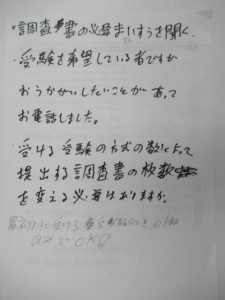 ・調査書の必要まいすうを聞く.
・受験を希望している者ですが
おうかがいしたいことがあって
お電話しました。
・受ける受験の方式の数によって
提出する調査書の枚数
を変える必要はありますか。
最初に受ける
OK?